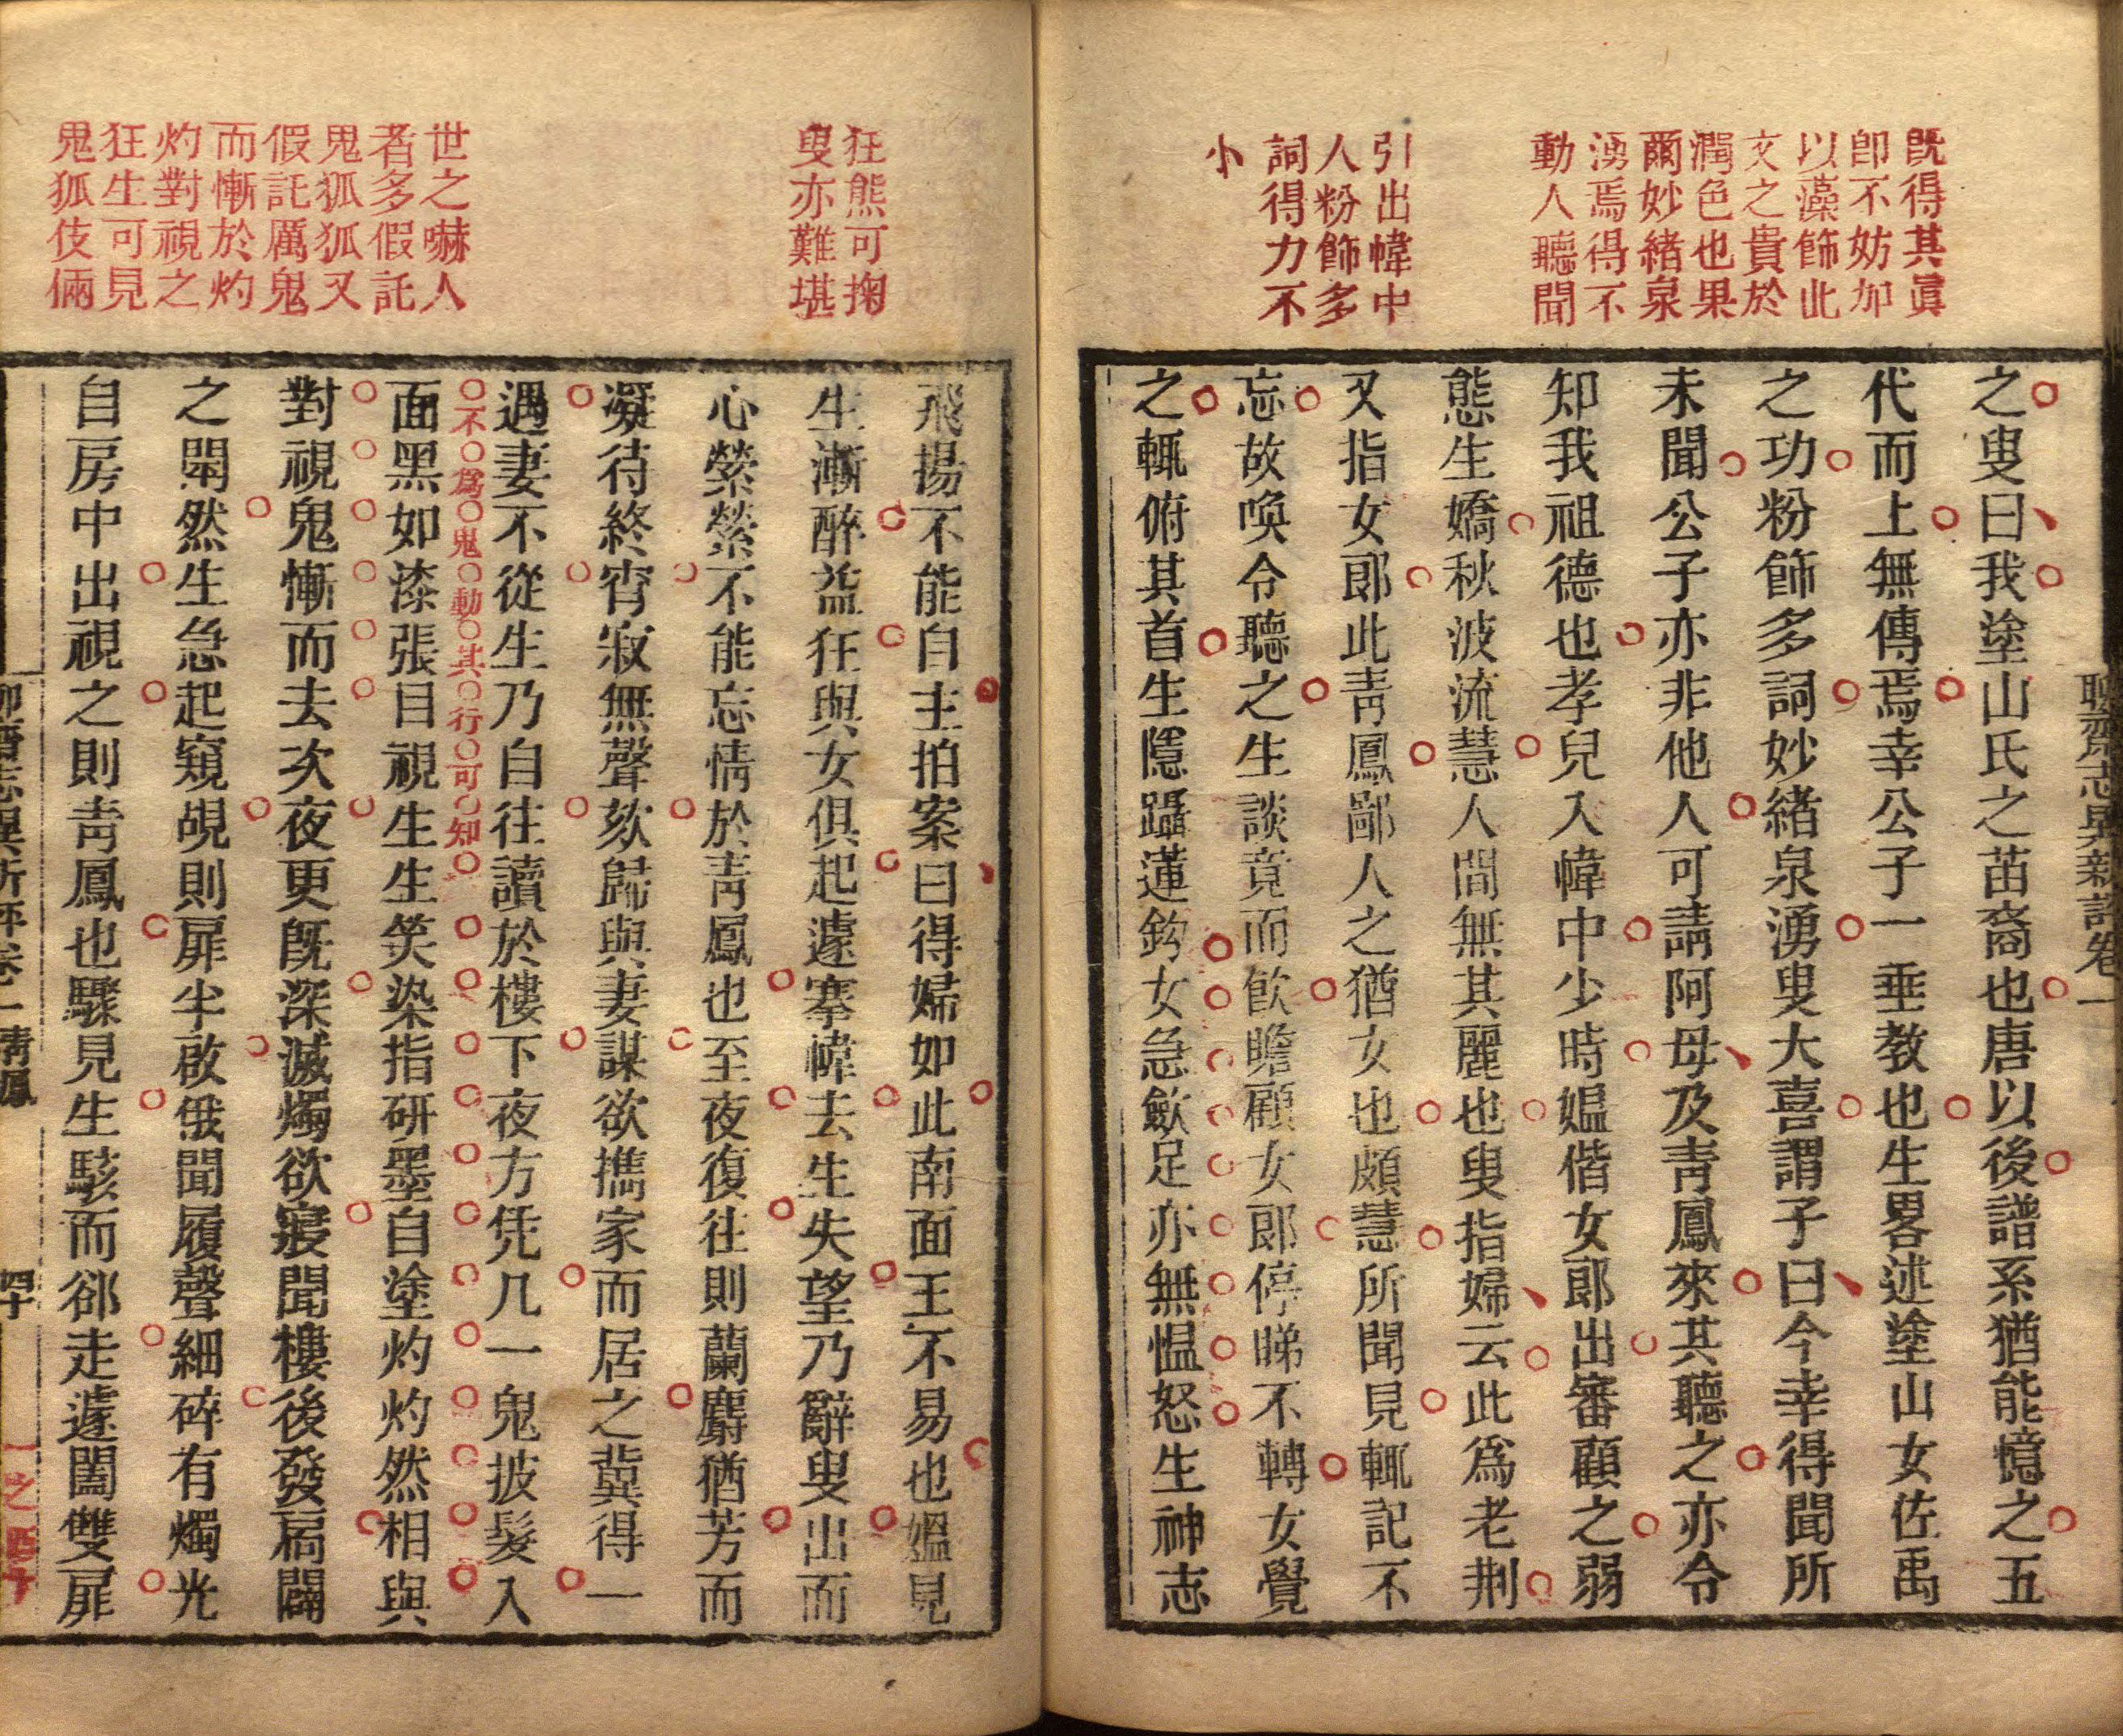 既得其眞
卽不妨加
以藻飾此
文之貴於
潤色也果
爾妙緒泉
湧焉得不
動人聽聞
引出幃中
人粉飾多
詞得力不
小
聊齋志異新評卷一
之叟曰我塗山氏之苗裔也唐以後譜系猶能憶之五
代而上無傳焉幸公子一垂教也生畧述塗山女佐禹
之功粉飾多詞妙緒泉湧叟大喜謂子曰今幸得聞所
未聞公子亦非他人可請阿母及靑鳳來其聽之亦令
知我祖德也孝兒入幃中少時媼偕女郎出審顧之弱
態生嬌秋波流慧人間無其麗也叟指婦云此爲老荆
又指女郎此靑鳳鄙人之猶女也頗慧所聞見輒記不
忘故喚令聽之生談竟而飮瞻顧女郎停睇不轉女覺
之輒俯其首生隱躡蓮鈎女急歛足亦無慍怒生神志
狂熊可掬
叟亦難堪
世之嚇人
者多假託
鬼狐狐又
假託厲鬼
而慚於灼
灼對視之
狂生可見
鬼狐伎倆
飛揚不能自主拍案曰得婦如此南面王不易也媼見
生漸醉益狂與女俱起遽搴幃去生失望乃辭叟出而
心縈縈不能忘情於靑鳳也至夜復往則蘭麝猶芳而
凝待終宵寂無聲欬歸與妻謀欲攜家而居之冀得一
遇妻不從生乃自往讀於樓下夜方凭几一鬼披髮入
不爲鬼動其行可知
面黑如漆張目視生生笑染指研墨自塗灼灼然相與
對視鬼慚而去次夜更旣深滅燭欲寢聞樓後發扃闢
之閛然生急起窺覘則扉半啟俄聞履聲細碎有燭光
自房中出視之則靑鳳也驟見生駭而郤走遽闔雙扉
聊齋志異新評卷一 靑鳳
四十